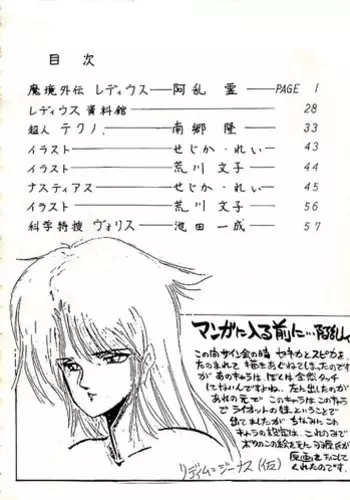 目次
魔境外伝 レディウス──阿乱 霊──PAGE 1
レディウス 資料館──28
超人 テクノ──南郷 隆──33
イラスト──せじか・れい──43
イラスト──荒川 文子──44
ナスティアス──せじか・れい──45
イラスト──荒川 文子──56
科学特捜 ヴォリス──池田 一成──57
マンガに入る前に…阿乱
この前サイン会の時 ヤネカとスピカを
たのまれて 1部をあずねてしまったのです
があのキャラは、ぼくは全然タッチ
してないんですよね。
あれの元で このキャラは
でライオットの妹ということで
出てましたが ちなみにこれ
キャラの設定は これのみで
ボクのこの絵を
原画をおこして
くれたのです。
リディム=ジーナス(仮)